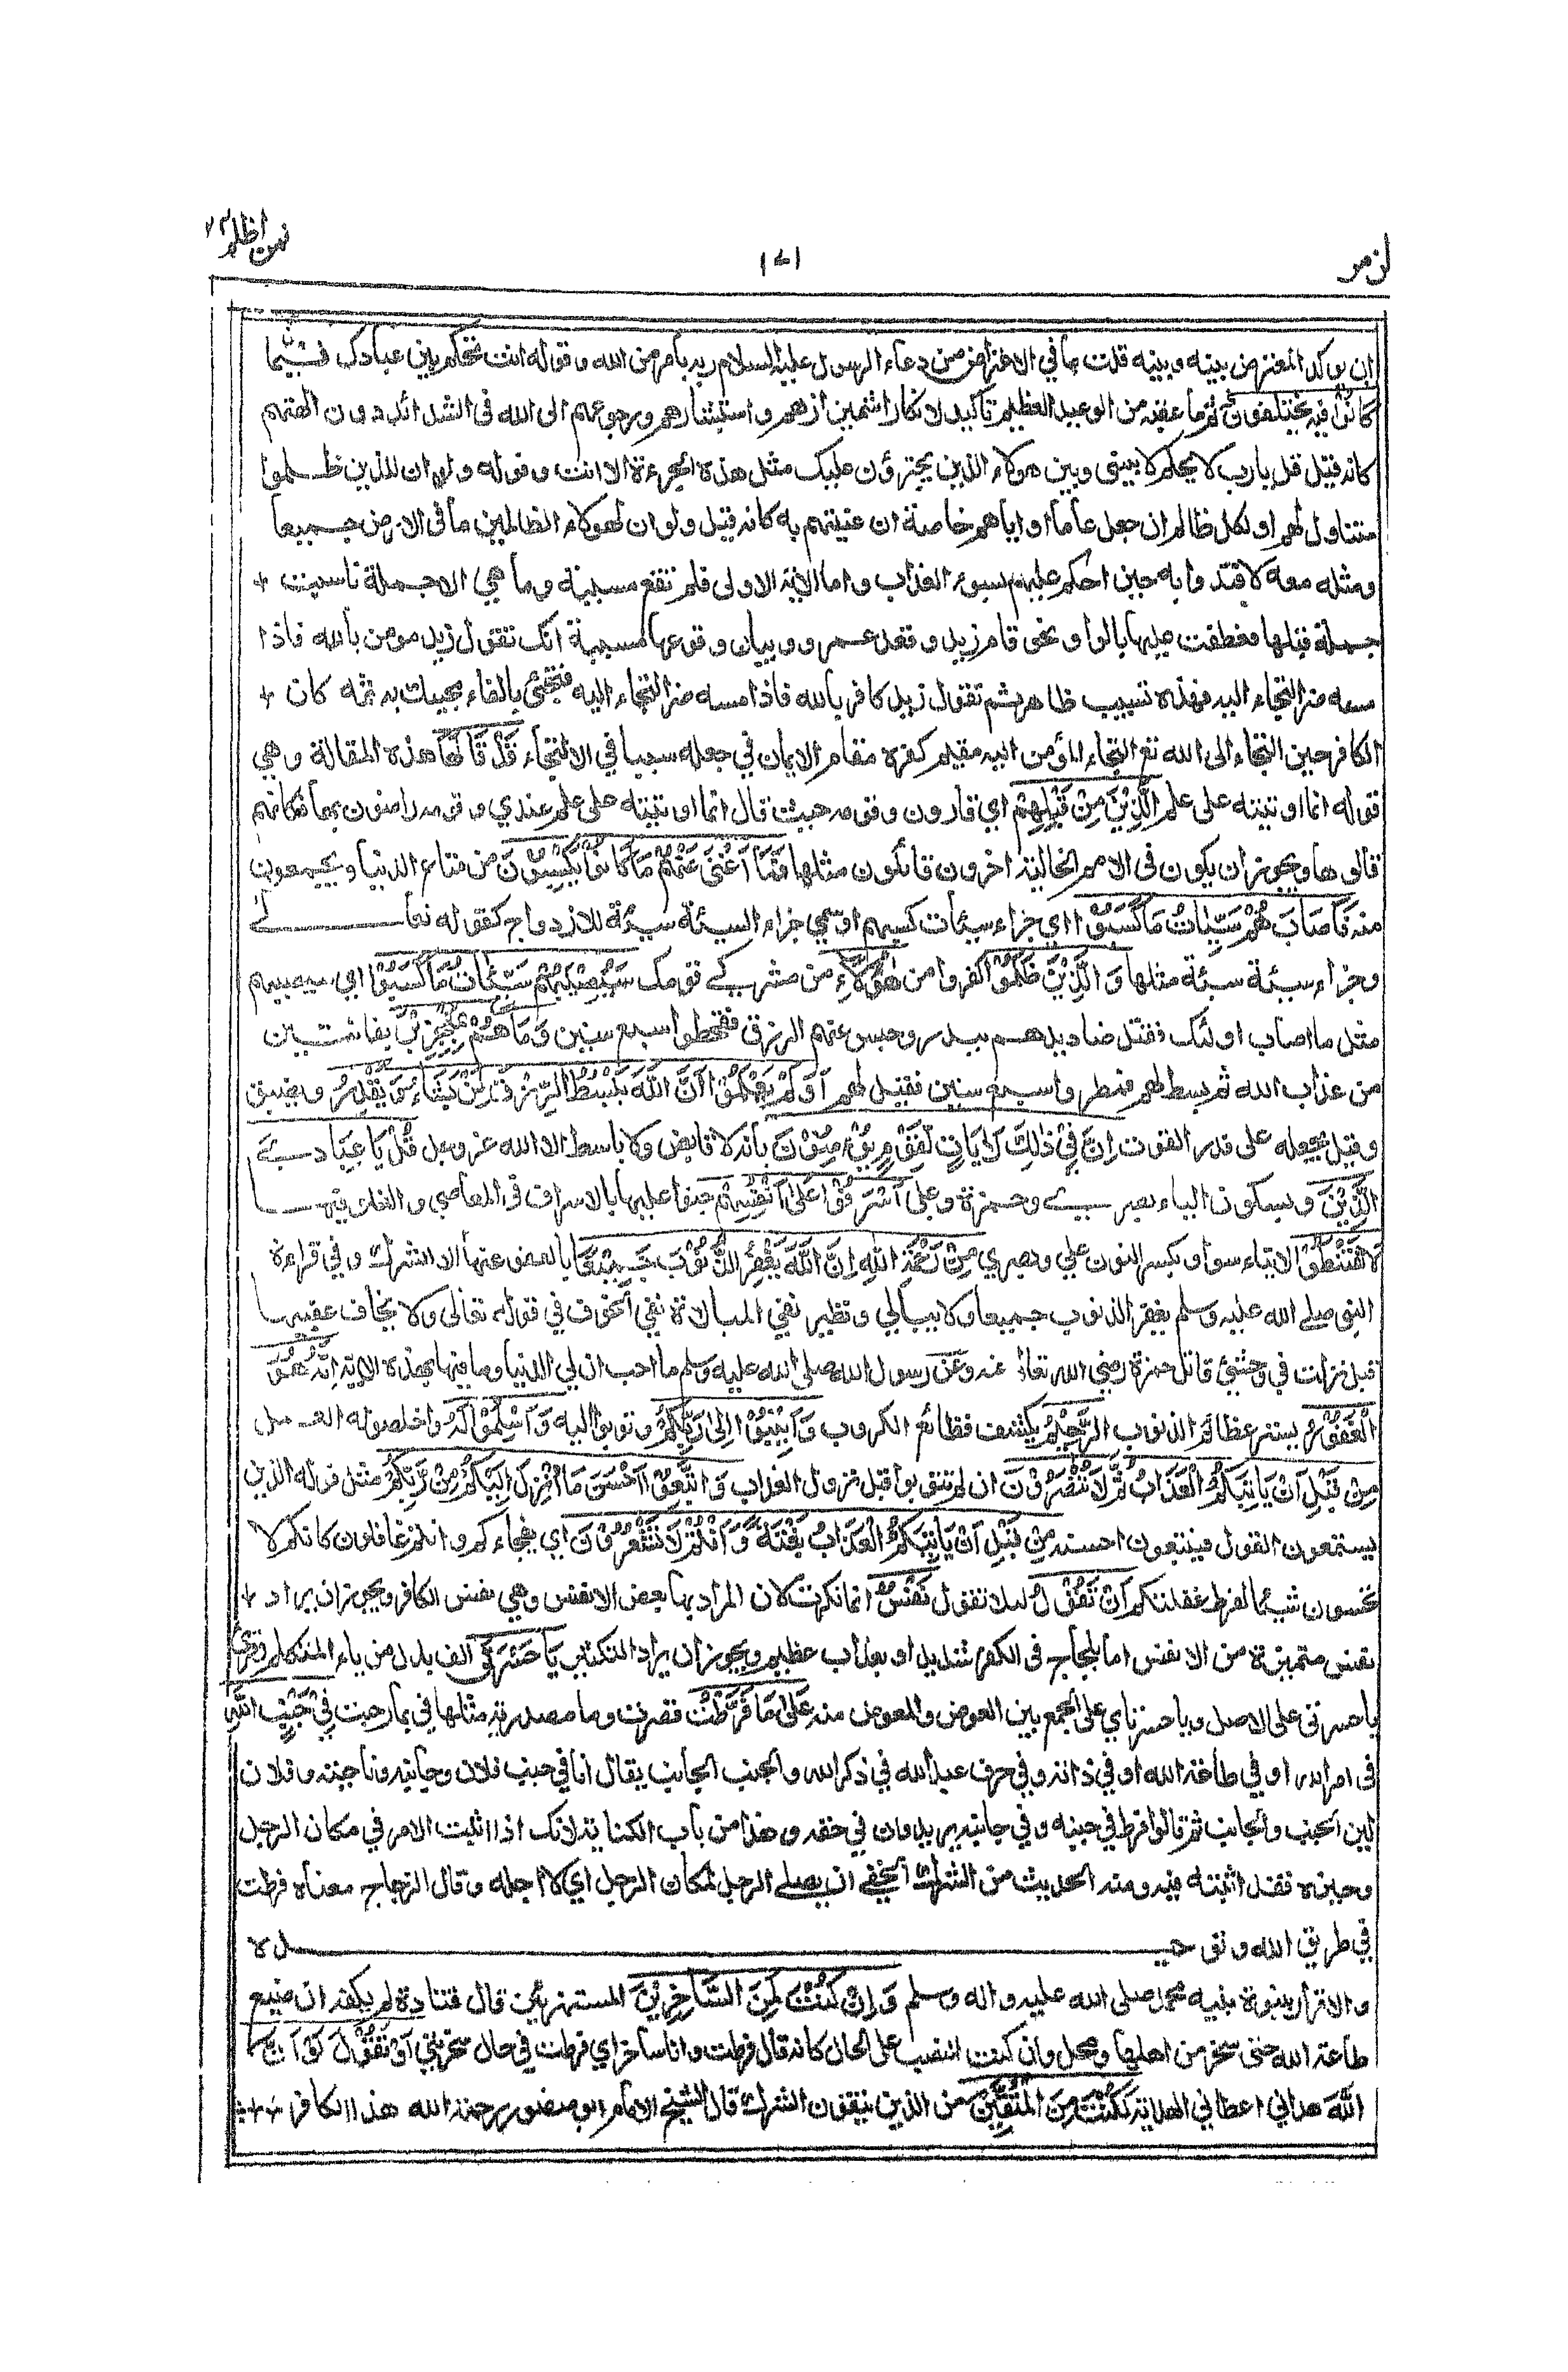 الزمر
١٧١
فمن اظلم ٢٤
ان يوكد المعترض بينه وبينه قلت ما في الاعتراض من دعاء الرسول عليه السلام ربه بامر من الله وقوله انت تحكم بين عبادك فيما
كانوا فيه يختلفون ثم ما عقبه من الوعيد العظيم تاكيد لانكار اشمئزازهم واستبشارهم ورجوعهم الى الله في الشدائد دون الهتهم
كانه قيل قل يا رب لا يحكم بيني وبين هولاء الذين يجترؤن عليك مثل هذه الجرءة الا انت وقوله ولو ان للذين ظلموا
متناول لهم او لكل ظالم ان جعل عاما او اياهم خاصة ان عنيتهم به كانه قيل ولو ان لهولاء الظالمين ما في الارض جميعا
ومثله معه لافتدوا به حين احكم عليهم بسوء العذاب واما الاية الاولى فلم تقع مسببة وما هي الا جملة ناسبت
جملة قبلها فعطفت عليها بالواو نحو قام زيد وقعد عمرو وبيان وقوعها مسببة انك تقول زيد مومن بالله فاذا
مسه ضر التجاء اليه فهذه تسبيب ظاهر ثم تقول زيد كافر بالله فاذا مسه ضر التجاء اليه فتجئ بالفاء مجيئك به ثمه كان
الكافر حين التجاء الى الله تع التجاء المؤمن اليه مقيم كفره مقام الايمان في جعله سببا في الالتجاء قَدْ قَالَهَا هذه المقالة وهي
قوله انما اوتيته على علم الَّذِيْنَ مِنْ قَبْلِهِمْ اي قارون وقومه حيث قال انما اوتيته على علم عندي وقومه راضون بها فكانهم
قالوها ويجوز ان يكون في الامم الخالية اخرون قائلون مثلها فَمَا اَغْنٰى عَنْهُمْ مَا كَانُوْا يَكْسِبُوْنَ من متاع الدنيا ويجمعون
منه فَاَصَابَهُمْ سَيِّاٰتُ مَا كَسَبُوْا اي جزاء سيئات كسبهم او سمي جزاء السيئة سيئة للازدواج كقوله تعالے
وجزاء سيئة سيئة مثلها وَالَّذِيْنَ ظَلَمُوْا كفروا من هٰؤُلَاءِ من مشركے قومك سَيُصِيْبُهُمْ سَيِّئَاتُ مَا كَسَبُوْا اي سيصيبهم
مثل ما اصاب اولئك فقتل صناديدهم ببدر وحبس عنهم الرزق فقحطوا سبع سنين وَمَا هُمْ بِمُعْجِزِيْنَ بفائتين
من عذاب الله ثم بسط لهم فمطروا سبع سنين فقيل لهم اَوَلَمْ يَعْلَمُوْا اَنَّ اللّٰهَ يَبْسُطُ الرِّزْقَ لِمَنْ يَشَاءُ وَيَقْدِرُ ويضيق
وقيل يجعله على قدر القوت اِنَّ فِيْ ذٰلِكَ لَاٰيَاتٍ لِقَوْمٍ يُؤْمِنُوْنَ بانه لا قابض ولا باسط الا الله عز وجل قُلْ يَا عِبَادِيَ
الَّذِيْنَ وبسكون الياء بصريے وحمزة وعلي اَسْرَفُوْا عَلٰى اَنْفُسِهِمْ جنوا عليها بالاسراف في المعاصي والغلو فيها
لَا تَقْنَطُوْا لا تيئسوا وبكسر النون علي وبصري مِنْ رَحْمَةِ اللّٰهِ اِنَّ اللّٰهَ يَغْفِرُ الذُّنُوْبَ جَمِيْعًا بالعفو عنها الا الشرك وفي قراءة
النبي صلے الله عليه وسلم يغفر الذنوب جميعا ولا يبالي ونظير نفي المبالاة نفي الخوف في قوله تعالى ولا يخاف عقبها
قيل نزلت في وحشئ قاتل حمزة رضي الله تعالى عنه وعن رسول الله صلى الله عليه وسلم ما احب ان لي الدنيا وما فيها بهذه الاية اِنَّهٗ هُوَ
الْغَفُوْرُ يستر عظائم الذنوب الرَّحِيْمُ يكشف فظائع الكروب وَاَنِيْبُوْا اِلٰى رَبِّكُمْ وتوبوا اليه وَاَسْلِمُوْا لَهٗ واخلصوا له العمل
مِنْ قَبْلِ اَنْ يَأْتِيَكُمُ الْعَذَابُ ثُمَّ لَا تُنْصَرُوْنَ ان لم تتوبوا قبل نزول العذاب وَاتَّبِعُوْا اَحْسَنَ مَا اُنْزِلَ اِلَيْكُمْ مِنْ رَّبِّكُمْ مثل قوله الذين
يستمعون القول فيتبعون احسنه مِنْ قَبْلِ اَنْ يَأْتِيَكُمُ الْعَذَابُ بَغْتَةً وَّاَنْتُمْ لَا تَشْعُرُوْنَ اي يفجاءكم وانتم غافلون كانكم لا
تخسون شيئا لفرط غفلتكم اَنْ تَقُوْلَ لئلا تقول نَفْسٌ انما نكرت لان المراد بها بعض الانفس وهي نفس الكافر ويجوز ان يراد
نفس متميزة من الانفس اما بلجاج في الكفر شديد او بعذاب عظيم ويجوز ان يراد التكثير يَا حَسْرَتٰى الف بدل من ياء المتكلم وقرئ
يا حسرتي على الاصل ويا حسرتاي على الجمع بين العوض والمعوض منه عَلٰى مَا فَرَّطْتُ قصرت وما مصدرية مثلها في بما رحبت فِيْ جَنْبِ اللّٰهِ
في امر الله او في طاعة الله او في ذاته وفي حرف عبد الله في ذكر الله والجنب الجانب يقال انا في جنب فلان وجانبه وناحيته وفلان
لين الجنب والجانب ثم قالوا فرط في جنبه وفي جانبه يريدون في حقه وهذا من باب الكناية لانك اذا اثبت الامر في مكان الرجل
وحيزه فقد اثبته فيه ومنه الحديث من الشرك الخفے ان يصلے الرجل لمكان الرجل اي لاجله وقال الزجاج معناه فرطت
في طريق الله وتوحيده
والاقرار بنبوة نبيه محمد صلى الله عليه واله وسلم وَاِنْ كُنْتُ لَمِنَ السَّاخِرِيْنَ المستهزئين قال قتادة لم يكفه ان ضيع
طاعة الله حتى سخر من اهلها ومحل وان كنت النصب على الحال كانه قال فرطت وانا ساخر اي فرطت في حال سخريتي اَوْ تَقُوْلَ لَوْ اَنَّ
اللّٰهَ هداني اعطاني الهداية لَكُنْتُ مِنَ الْمُتَّقِيْنَ من الذين يتقون الشرك قال الشيخ الامام ابو منصور رحمة الله هذا الكافر